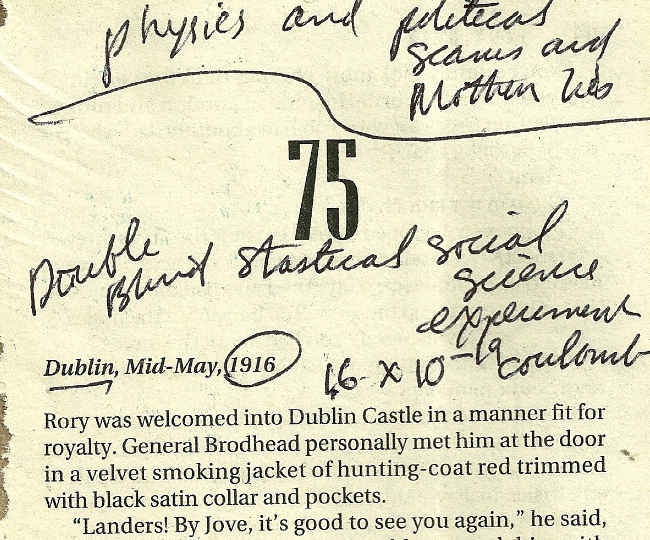 physics and political
scams and
Mother lies
75
Double
Blind Stastical social
science
experiment
1.6 x 10-19 coulomb
Dublin, Mid-May, 1916
Rory was welcomed into Dublin Castle in a manner fit for
royalty. General Brodhead personally met him at the door
in a velvet smoking jacket of hunting-coat red trimmed
with black satin collar and pockets.
“Landers! By Jove, it’s good to see you again,” he said,